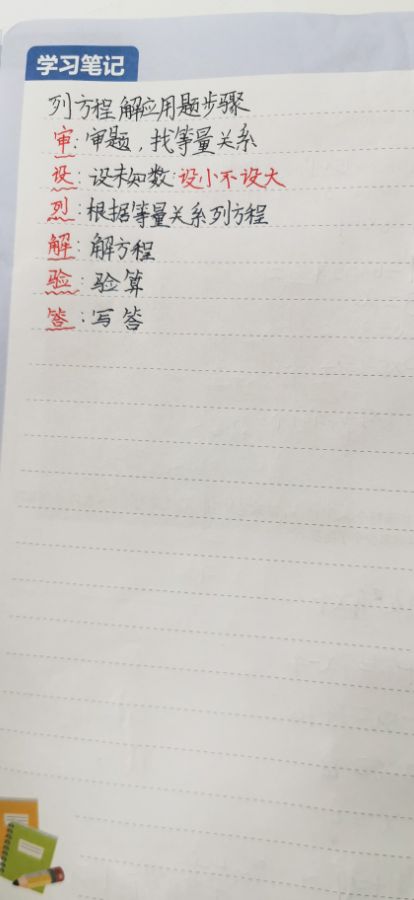 学习笔记
列方程解应用题步骤
审:审题,找等量关系
设:设未知数:设小不设大
烈:根据等量关系列方程
解:解方程
验:验算
答:写答